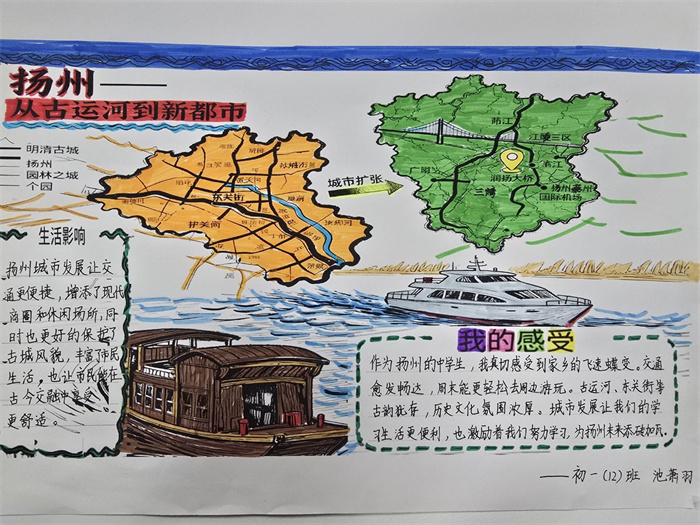 扬州——
从古运河到新都市
明清古城
扬州
园林之城
个园
东关街
城市扩张
邗江
江都三区
广陵
润扬大桥
扬州泰州
国际机场
生活影响
扬州城市发展让交
通更便捷，增添了现代
商圈和休闲场所，同
时也更好的保护了
古城风貌，丰富了市民
生活，也让市民能在
古今交融中享受
更舒适。
我的感受
作为扬州的中学生，我真切感受到家乡的飞速蝶变。交通
愈发畅达，周末能更轻松去周边游玩。古运河、东关街等
古韵犹存，历史文化氛围浓厚。城市发展让我们的学
习生活更便利，也激励着我们努力学习，为扬州未来添砖加瓦。
——初一(12)班 池萧羽